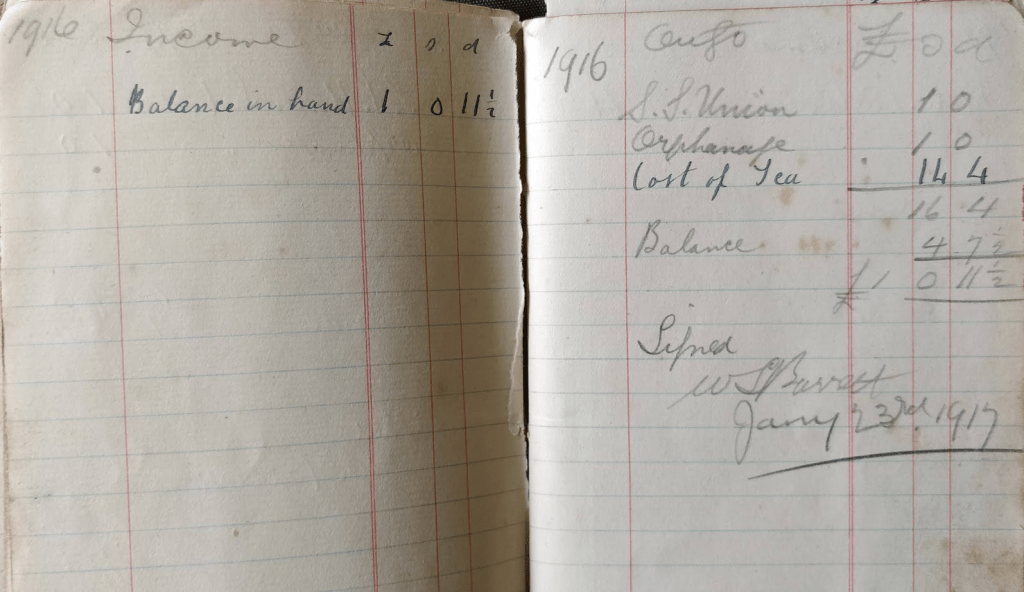 1916 Income £ s d
Balance in hand 1 0 11½
1916 Outgo £ s d
S. S. Union 1 0
Orphanage 1 0
Cost of Tea 14 4
16 4
Balance 4 7½
£1 0 11½
Signed
W S Barratt
Jany 23rd. 1917